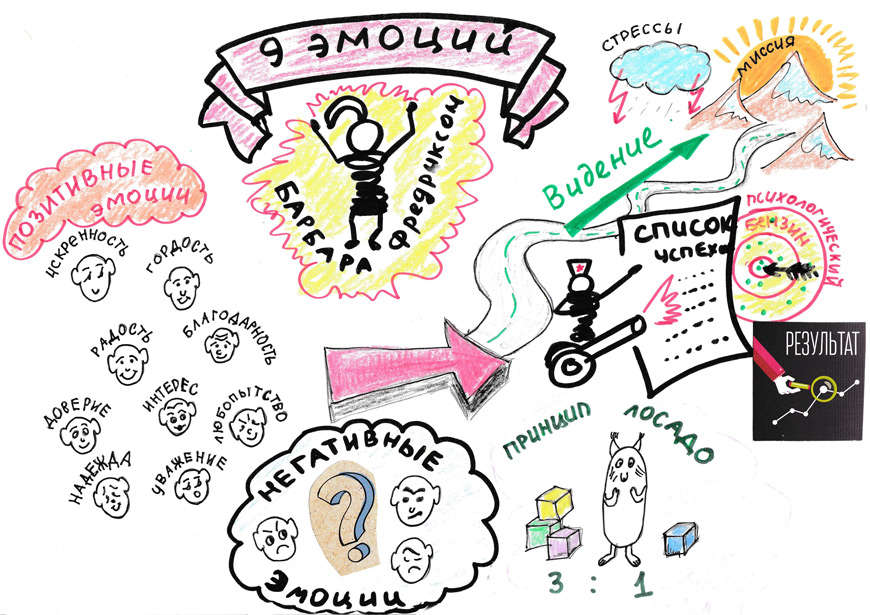 9 ЭМОЦИЙ
БАРБАРА
ФРЕДРИКСОН
СТРЕССЫ
МИССИЯ
Видение
ПОЗИТИВНЫЕ
ЭМОЦИИ
ИСКРЕННОСТЬ
ГОРДОСТЬ
РАДОСТЬ
БЛАГОДАРНОСТЬ
ДОВЕРИЕ
ИНТЕРЕС
ЛЮБОПЫТСТВО
НАДЕЖДА
УВАЖЕНИЕ
СПИСОК
УСПЕХОВ
ПСИХОЛОГИЧЕСКИЙ
БЕНЗИН
РЕЗУЛЬТАТ
НЕГАТИВНЫЕ
?
ЭМОЦИИ
ПРИНЦИП ЛОСАДО
3 : 1